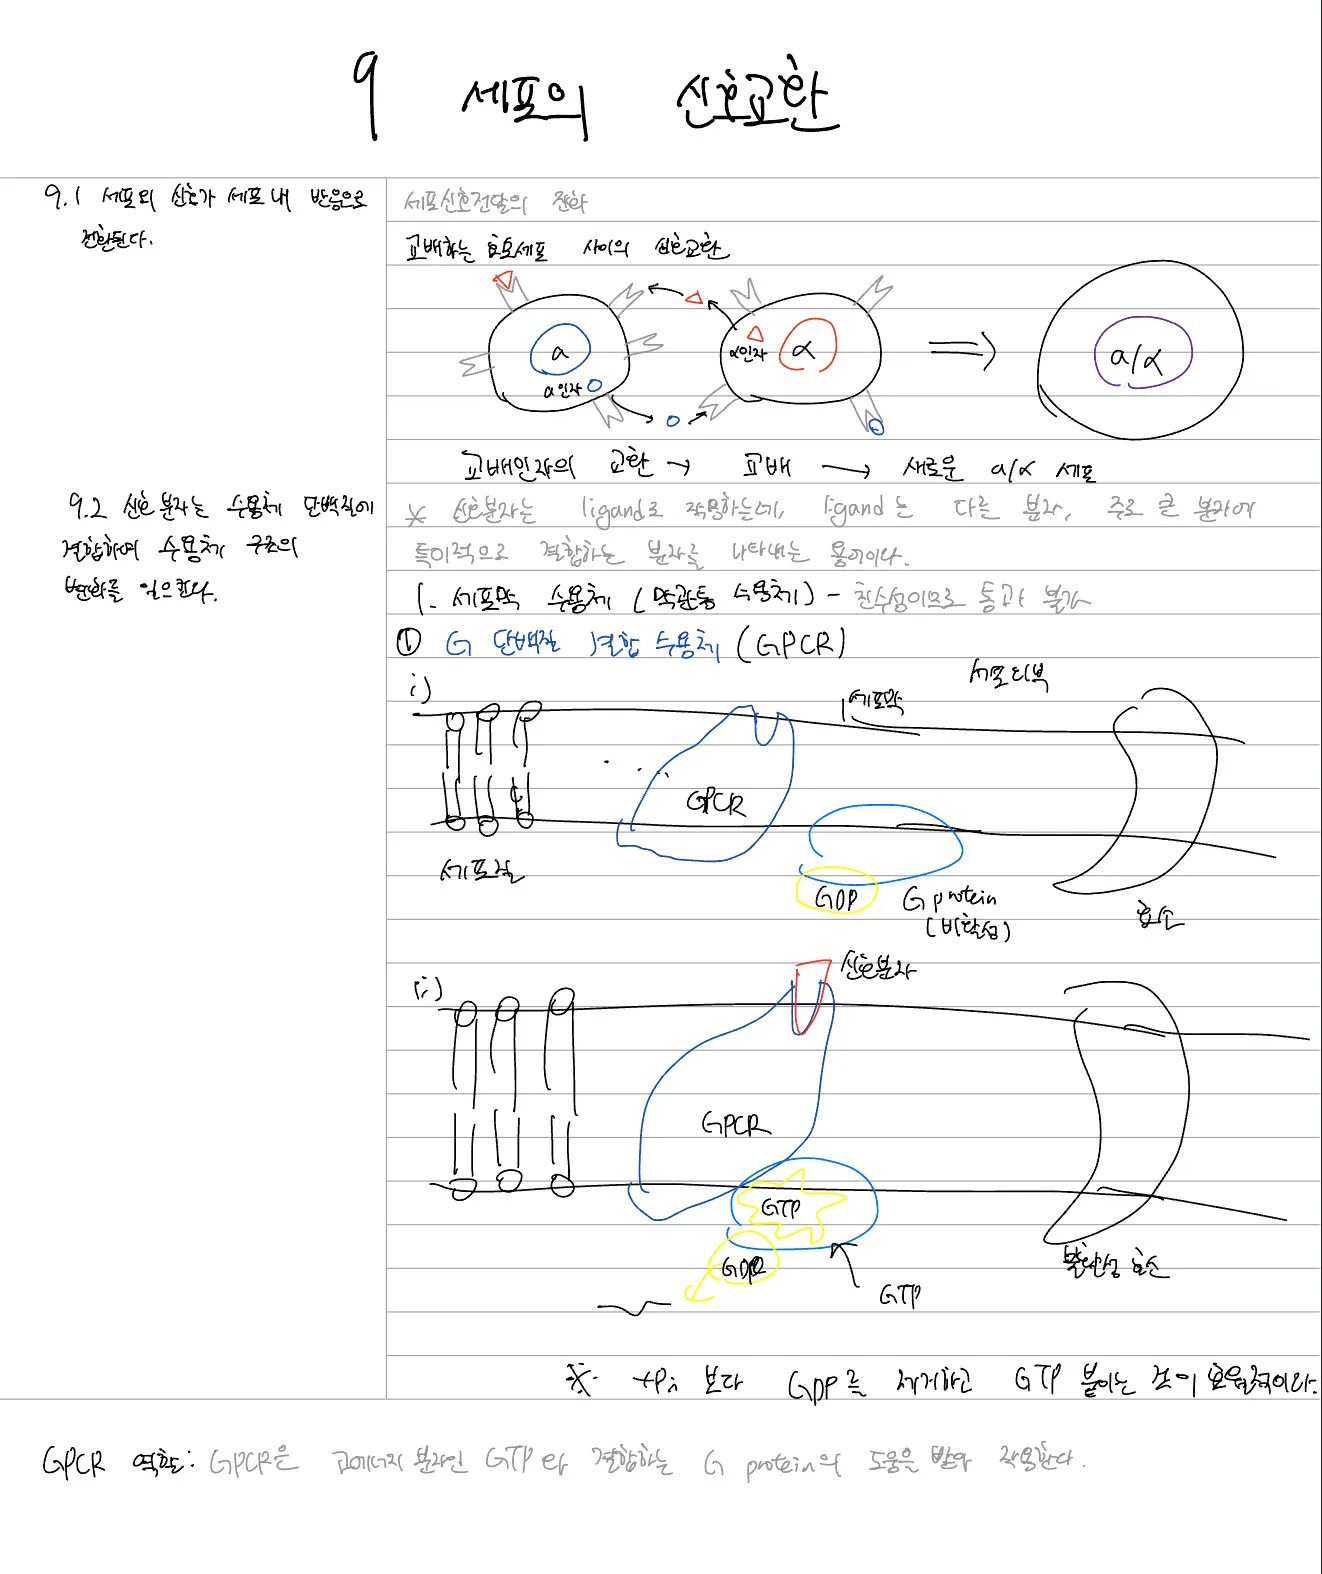 9 세포의 신호교환
9.1 세포외 신호가 세포 내 반응으로
전환된다.
세포신호전달의 진화
교배하는 효모세포 사이의 신호교환
a
a인자
α인자
α
a/α
교배인자의 교환 → 교배 → 새로운 a/α 세포
9.2 신호분자는 수용체 단백질에
결합하여 수용체 구조의
변화를 일으킨다.
* 신호분자는 ligand로 작용하는데, ligand는 다른 분자, 주로 큰 분자에
특이적으로 결합하는 분자를 나타내는 용어이다.
1. 세포막 수용체 (막관통 수용체) - 친수성이므로 통과 불가
① G 단백질 결합 수용체 (GPCR)
i)
세포막
세포외부
GPCR
세포질
GDP
G protein
(비활성)
효소
ii)
신호분자
GPCR
GTP
GDP
GTP
불활성 효소
※ +Pi 보다 GDP를 제거하고 GTP 붙이는 것이 효율적이다.
GPCR 역할: GPCR은 고에너지 분자인 GTP와 결합하는 G protein의 도움을 받아 작용한다.